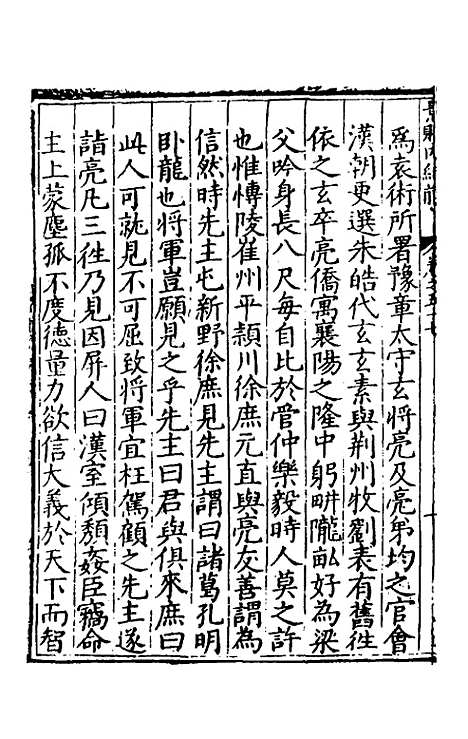 為袁術所署豫章太守玄將亮及亮弟均之官會
漢朝更選朱皓代玄玄素與荆州牧劉表有舊徃
依之玄卒亮僑寓襄陽之隆中躬畊隴畝好為梁
父吟身長八尺每自比於管仲樂毅時人莫之許
也惟愽陵崔州平頴川徐庶元直與亮友善謂為
信然時先主屯新野徐庶見先主謂曰諸葛孔明
卧龍也將軍豈願見之乎先主曰君與俱來庶曰
此人可就見不可屈致將軍宜枉駕顧之先主遂
詣亮凡三徃乃見因屏人曰漢室傾頽姦臣竊命
主上蒙塵孤不度德量力欲信大義於天下而智